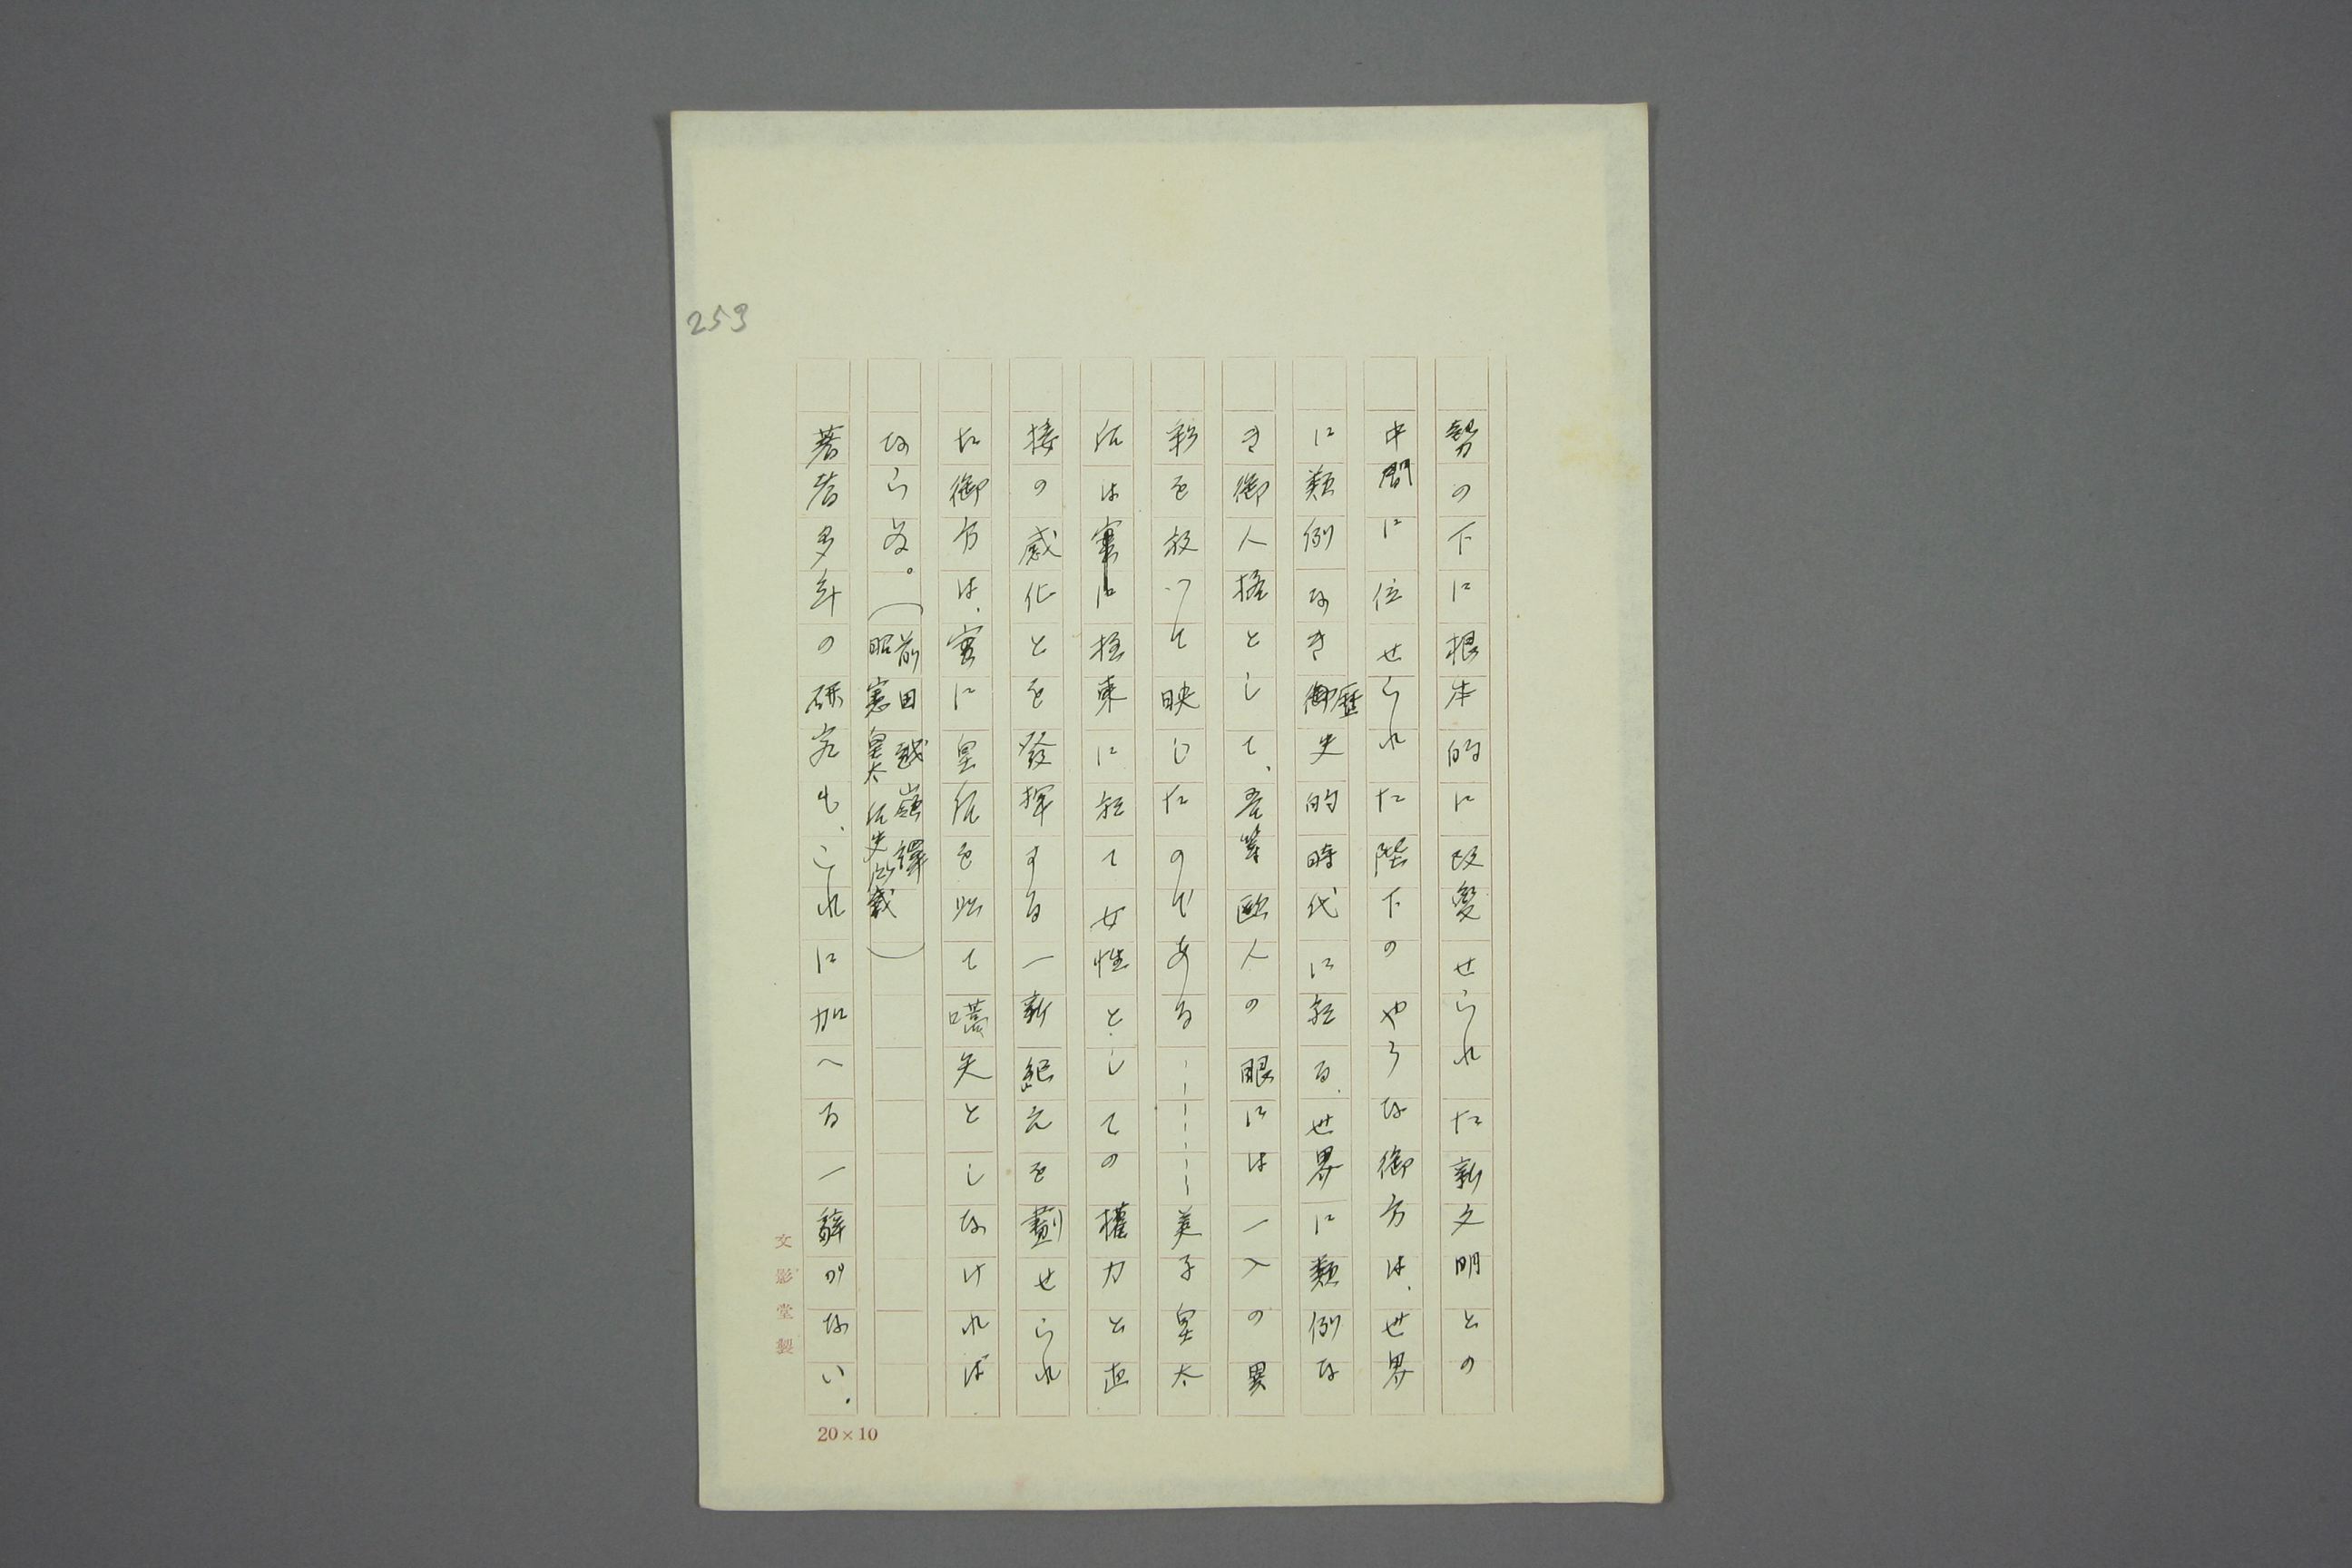 253
勢の下に根本的に改變せられた新文明との
中間に位せられた陛下のやうな御方は、世界
に類例なき歷史的時代に於る、世界に類例な
き御人格として、吾等歐人の眼には一入の異
彩を放つて映じたのである……美子皇太
后は實に極東に於て女性としての權力と直
接の感化とを發揮する一新紀元を劃せられ
た御方は、實に皇后を以て嚆矢としなければ
ならぬ。(前田越嶺譯
昭憲皇太后史所載)
著者多年の研究も、これに加へる一辭がない。
文影堂製
20×10